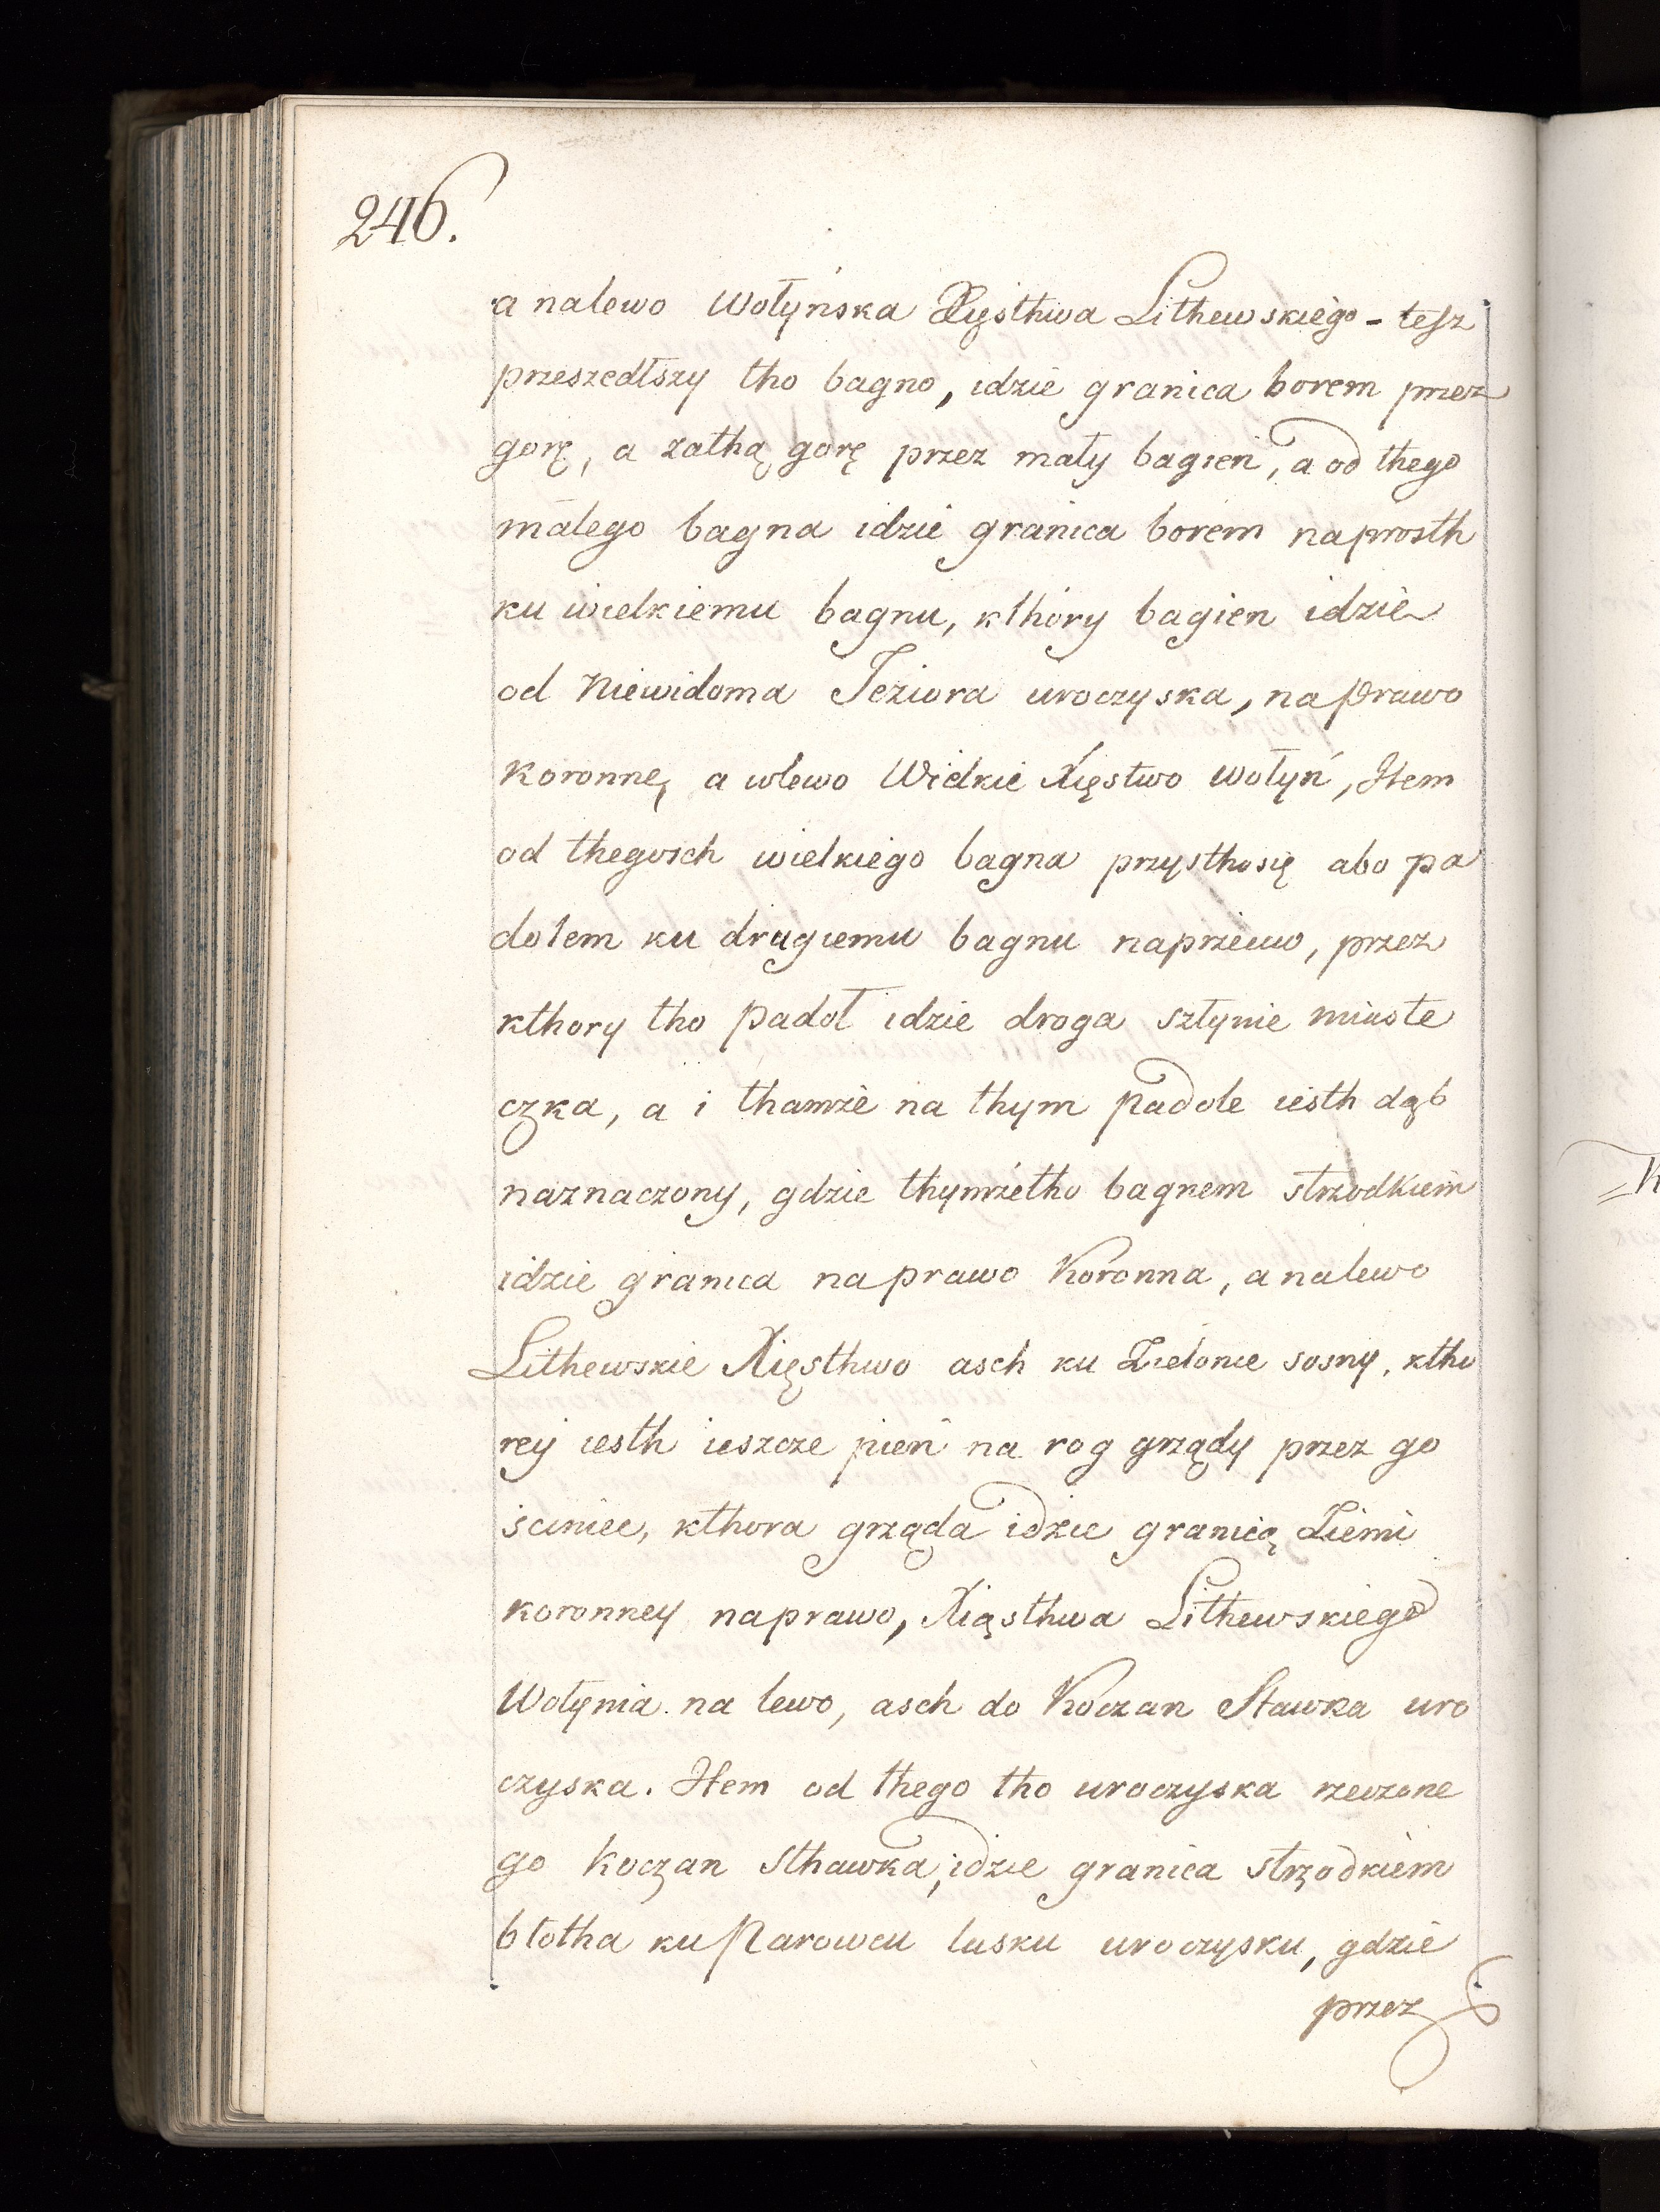 246.
a nalewo Wołyńska Xięsthwa Lithewskiego - tesz
przeszedłszy tho bagno, idzie granica borem przez
gorę, a zathą gorę przez mały bagień, a od thego
małego bagna idzie granica borem naprosth
ku wielkiemu bagnu, kthóry bagien idzie
od Niewidoma Jeziora uroczyska, naprawo
Koronne, a wlewo Wielkie Xięstwo Wołyń, Item
od thegosch wielkiego bagna przysthosię abo pa
dolem ku drugiemu bagnu naprzeciwo, przez
kthory tho padoł idzie droga sztynie miaste
czka, a i thamże na thym padole iesth dąb
naznaczony, gdzie thymżetho bagnem strzodkiem
idzie granica naprawo Koronna, a nalewo
Lithewskie Xięsthwo asch ku Zielonie sosny, ktho
rej iesth ieszcze pień na rog grządy przez go
sciniec, kthora grząda idzie granicą Ziemi
koronney naprawo, Xiąsthwa Lithewskiego
Wołynia na lewo, asch do Koczan Stawka uro
czyska. Item od thego tho uroczyska rzeczone
go Koczan Sthawka, idzie granica strzodkiem
błotha ku Parowcu lasku uroczysku, gdzie
przez